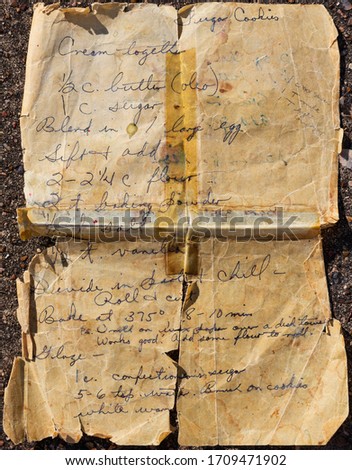 Sugar Cookies
Cream together
1/2 c. butter (oleo)
c. sugar
Blend in 1 large egg
Sift & add
2 - 2 1/4 c. flour
2 t baking powder
t vanilla
Divide in & chill -
Roll & cut
Bake at 375° 8-10 min
Works good. Add some flour to roll.
Glaze -
1 c. confectioner's sugar
5-6 tsp water. Brush on cookies
while warm
shutterstock.com · 1679471902